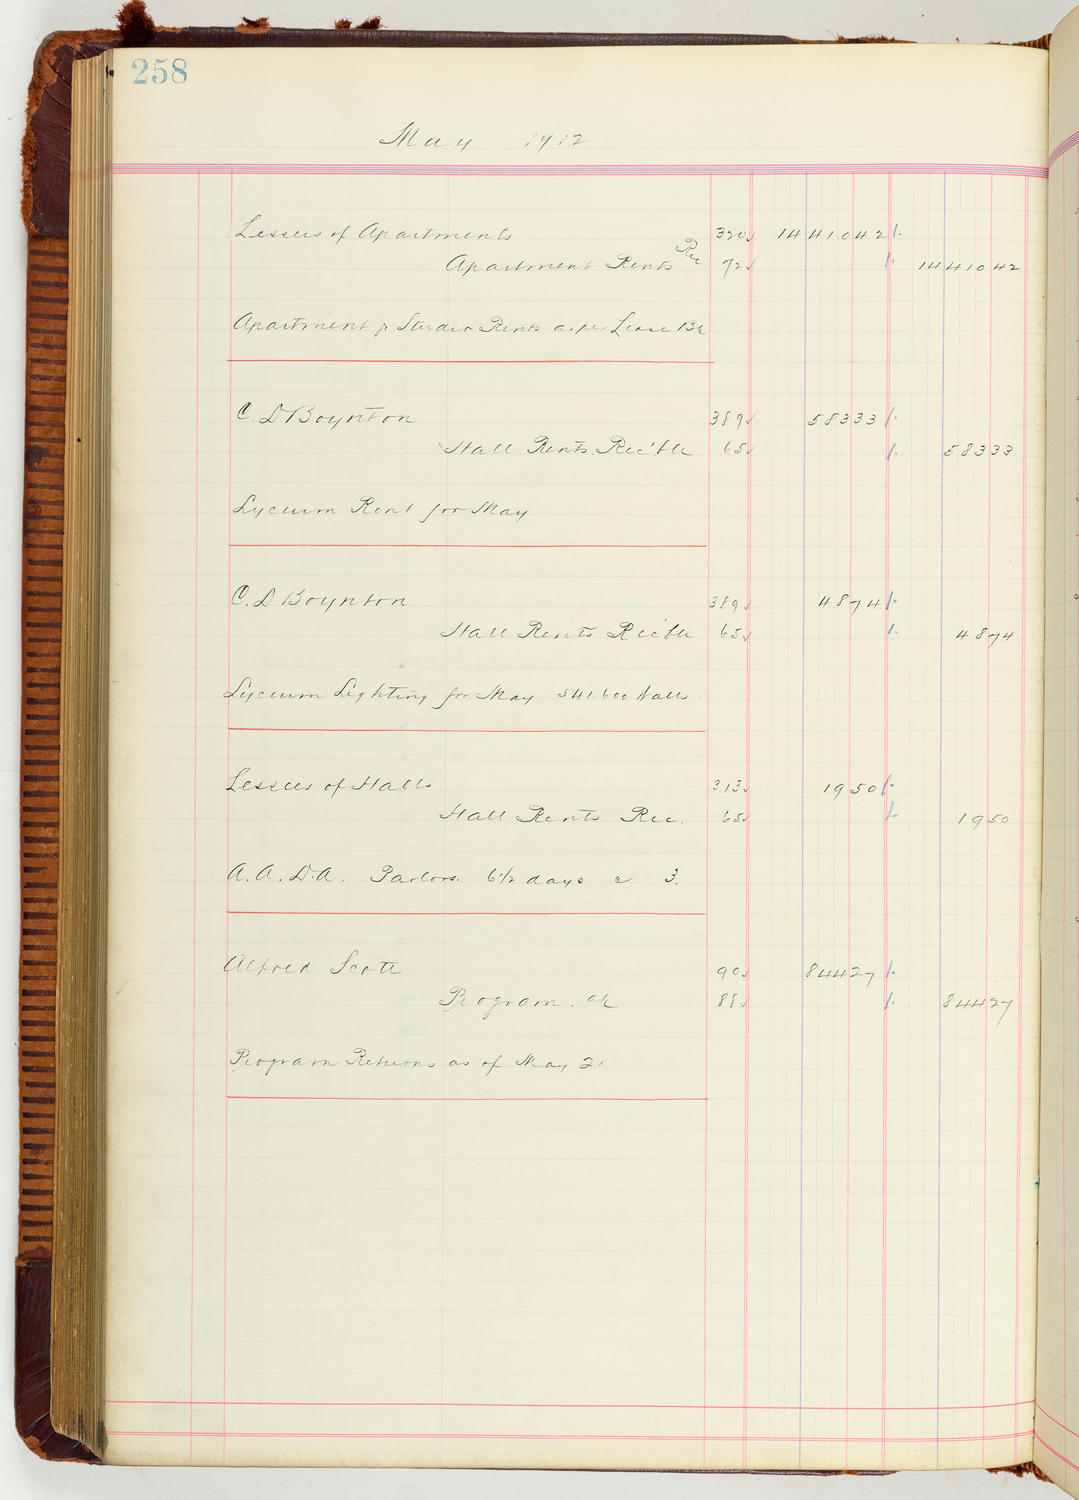 258
May 1912
Lessees of Apartments 320 √ 14410 42
Apartment Rents Rec 72 √ 14410 42
Apartment & Studio Rents as per Lease Bk
C. D Boynton 389 √ 583 33
Hall Rents Rec'ble 65 √ 583 33
Lyceum Rent for May
C. D Boynton 389 √ 48 74
Hall Rents Rec'ble 65 √ 48 74
Lyceum Lighting for May 541.600 Watts
Lessees of Halls 313 √ 19 50
Hall Rents Rec. 65 √ 19 50
A. A. D. A. Parlors. 6 1/2 days @ 3.
Alfred Scott 90 √ 844 27
Program a/c 88 √ 844 27
Program Returns as of May 21